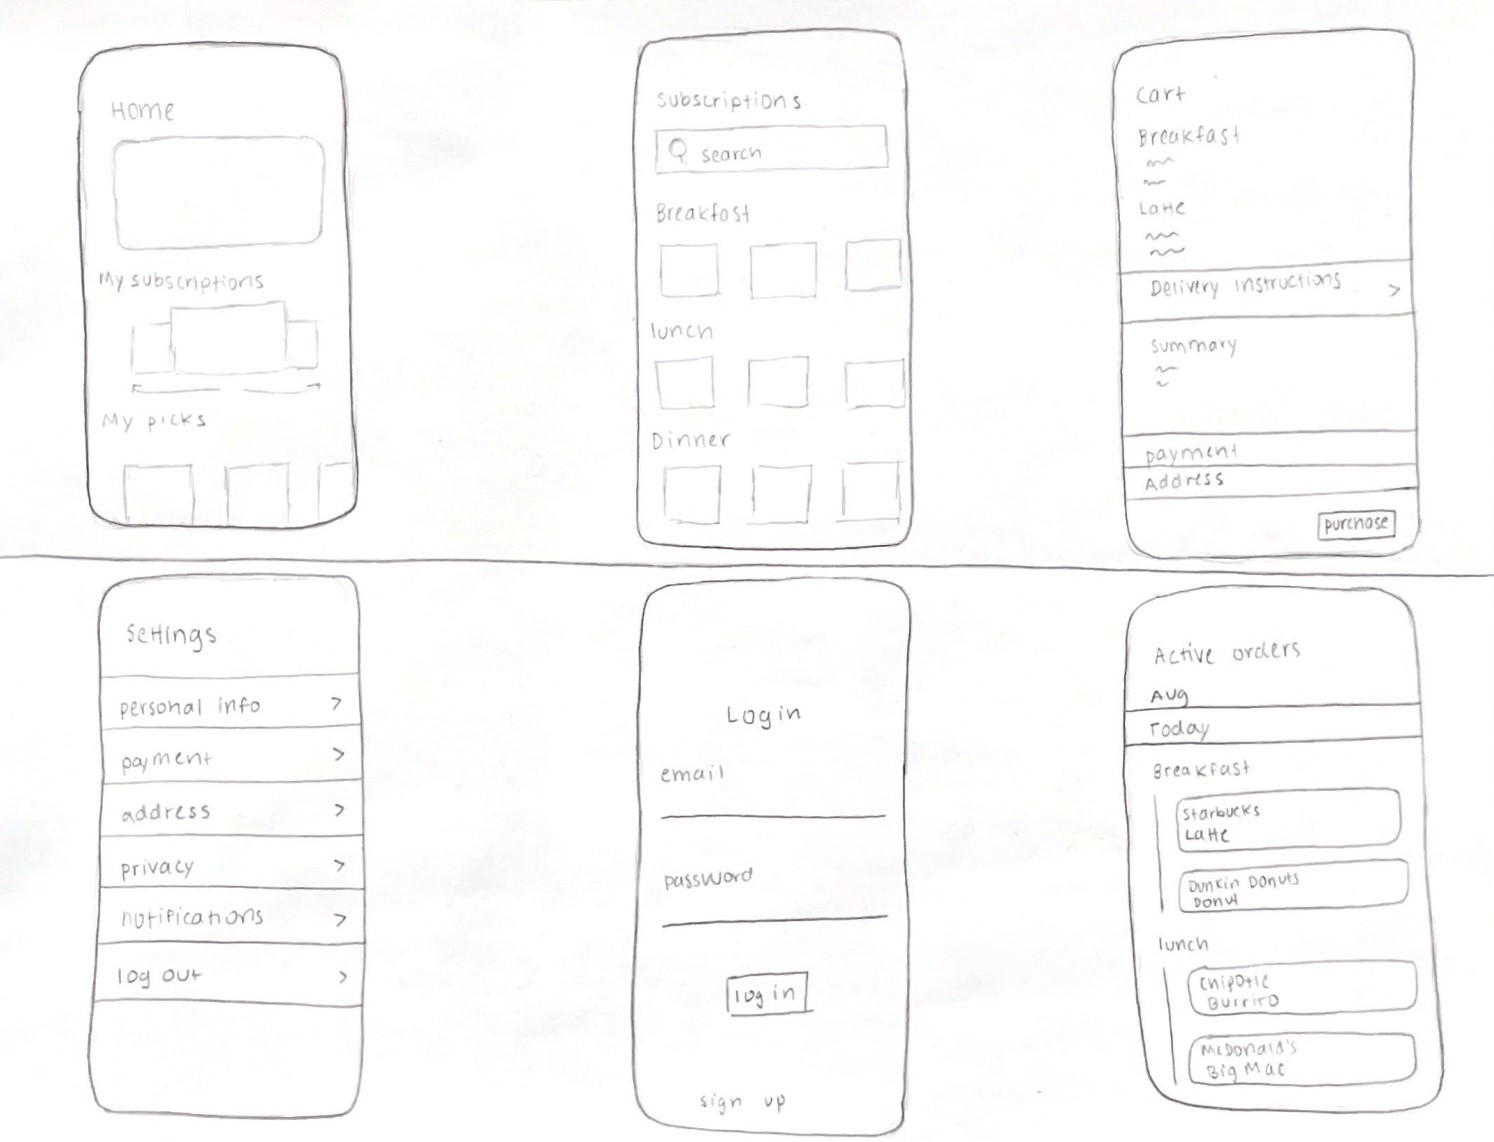 Home
My subscriptions
My picks
subscriptions
search
Breakfast
lunch
Dinner
Cart
Breakfast
Latte
Delivery instructions >
summary
payment
Address
purchase
Settings
personal info >
payment >
address >
privacy >
notifications >
log out >
Login
email
password
log in
sign up
Active orders
Aug
Today
Breakfast
Starbucks
Latte
Dunkin Donuts
Donut
lunch
Chipotle
Burrito
McDonald's
Big Mac